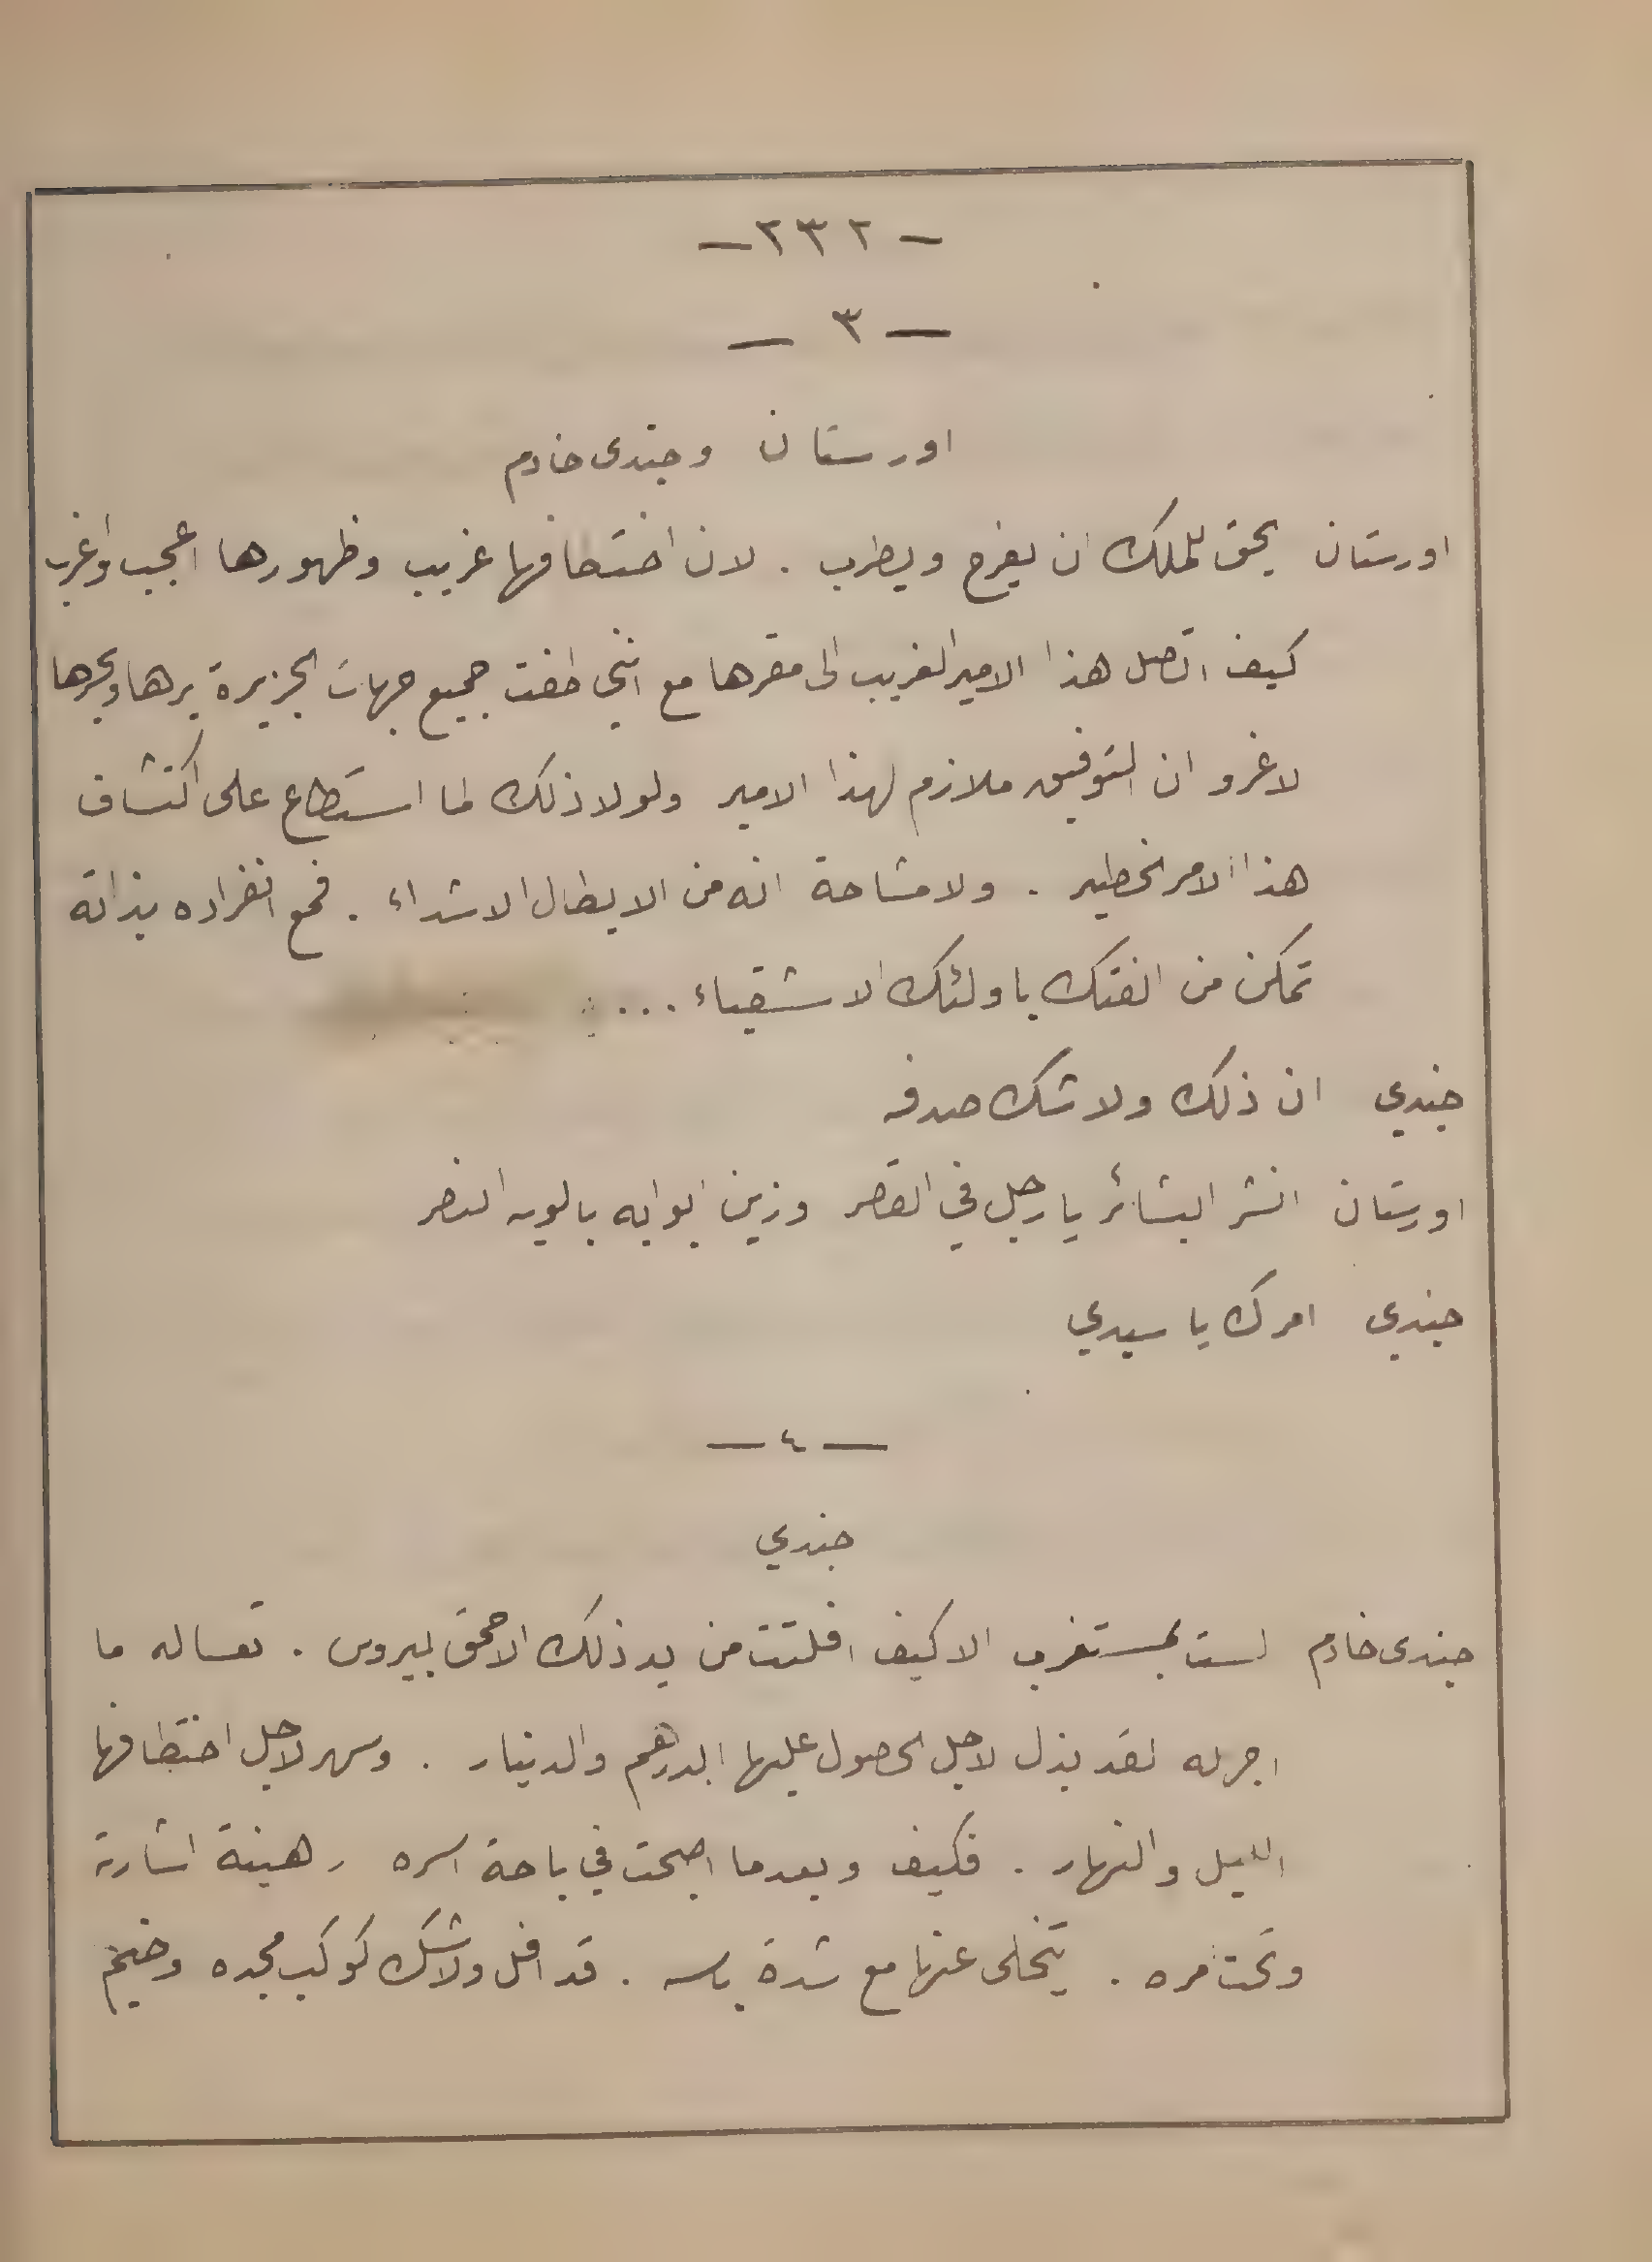 — ٢٣٢ —
— ٣ —
اورستان وجندى خادم
اورستان يحق للملك ان يفرح ويطرب . لان اختطافها غريب وظهورها اعجب واغرب
كيف اتصل هذا الامير الغريب الى مقرها مع انني طفت جميع جهات الجزيرة برها وبحرها
لاغرو ان التوفيق ملازم لهذا الامير ولولا ذلك لما استطاع على اكتشاف
هذا الامر الخطير . ولا مشاحة انه من الابطال الاشداء . فمع انفراده بذاته
تمكن من الفتك باولئك الاشقياء ...
جندي ان ذلك ولا شك صدفه
اورستان انشر البشائر يا رجل في القصر وزين ابوابه بالويه النصر
جندي امرك يا سيدي
— ٤ —
جندي
جندى خادم لست بمستغرب الا كيف افلتت من يد ذلك الاحمق بيروس . تعسا له ما
اجر له لقد بذل لاجل الحصول عليها الدرهم والدينار . وسهر لاجل اختطافها
الليل والنهار . فكيف وبعدما اصبحت في باحة اسره رهينة اشارته
وتحت مره . يتخلى عنها مع شدة باسه . قد افل ولاشك كوكب مجده وخيم